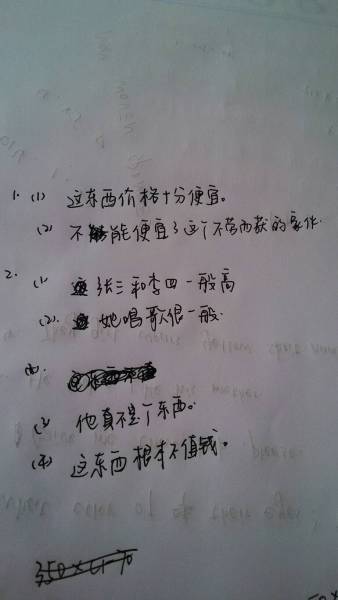 1. (1) 这东西价格十分便宜。
(2) 不能便宜了这个不劳而获的家伙.
2. (1) 张三和李四一般高
(2). 她唱歌很一般.
(3) 他真不是个东西。
(4) 这东西根本不值钱。